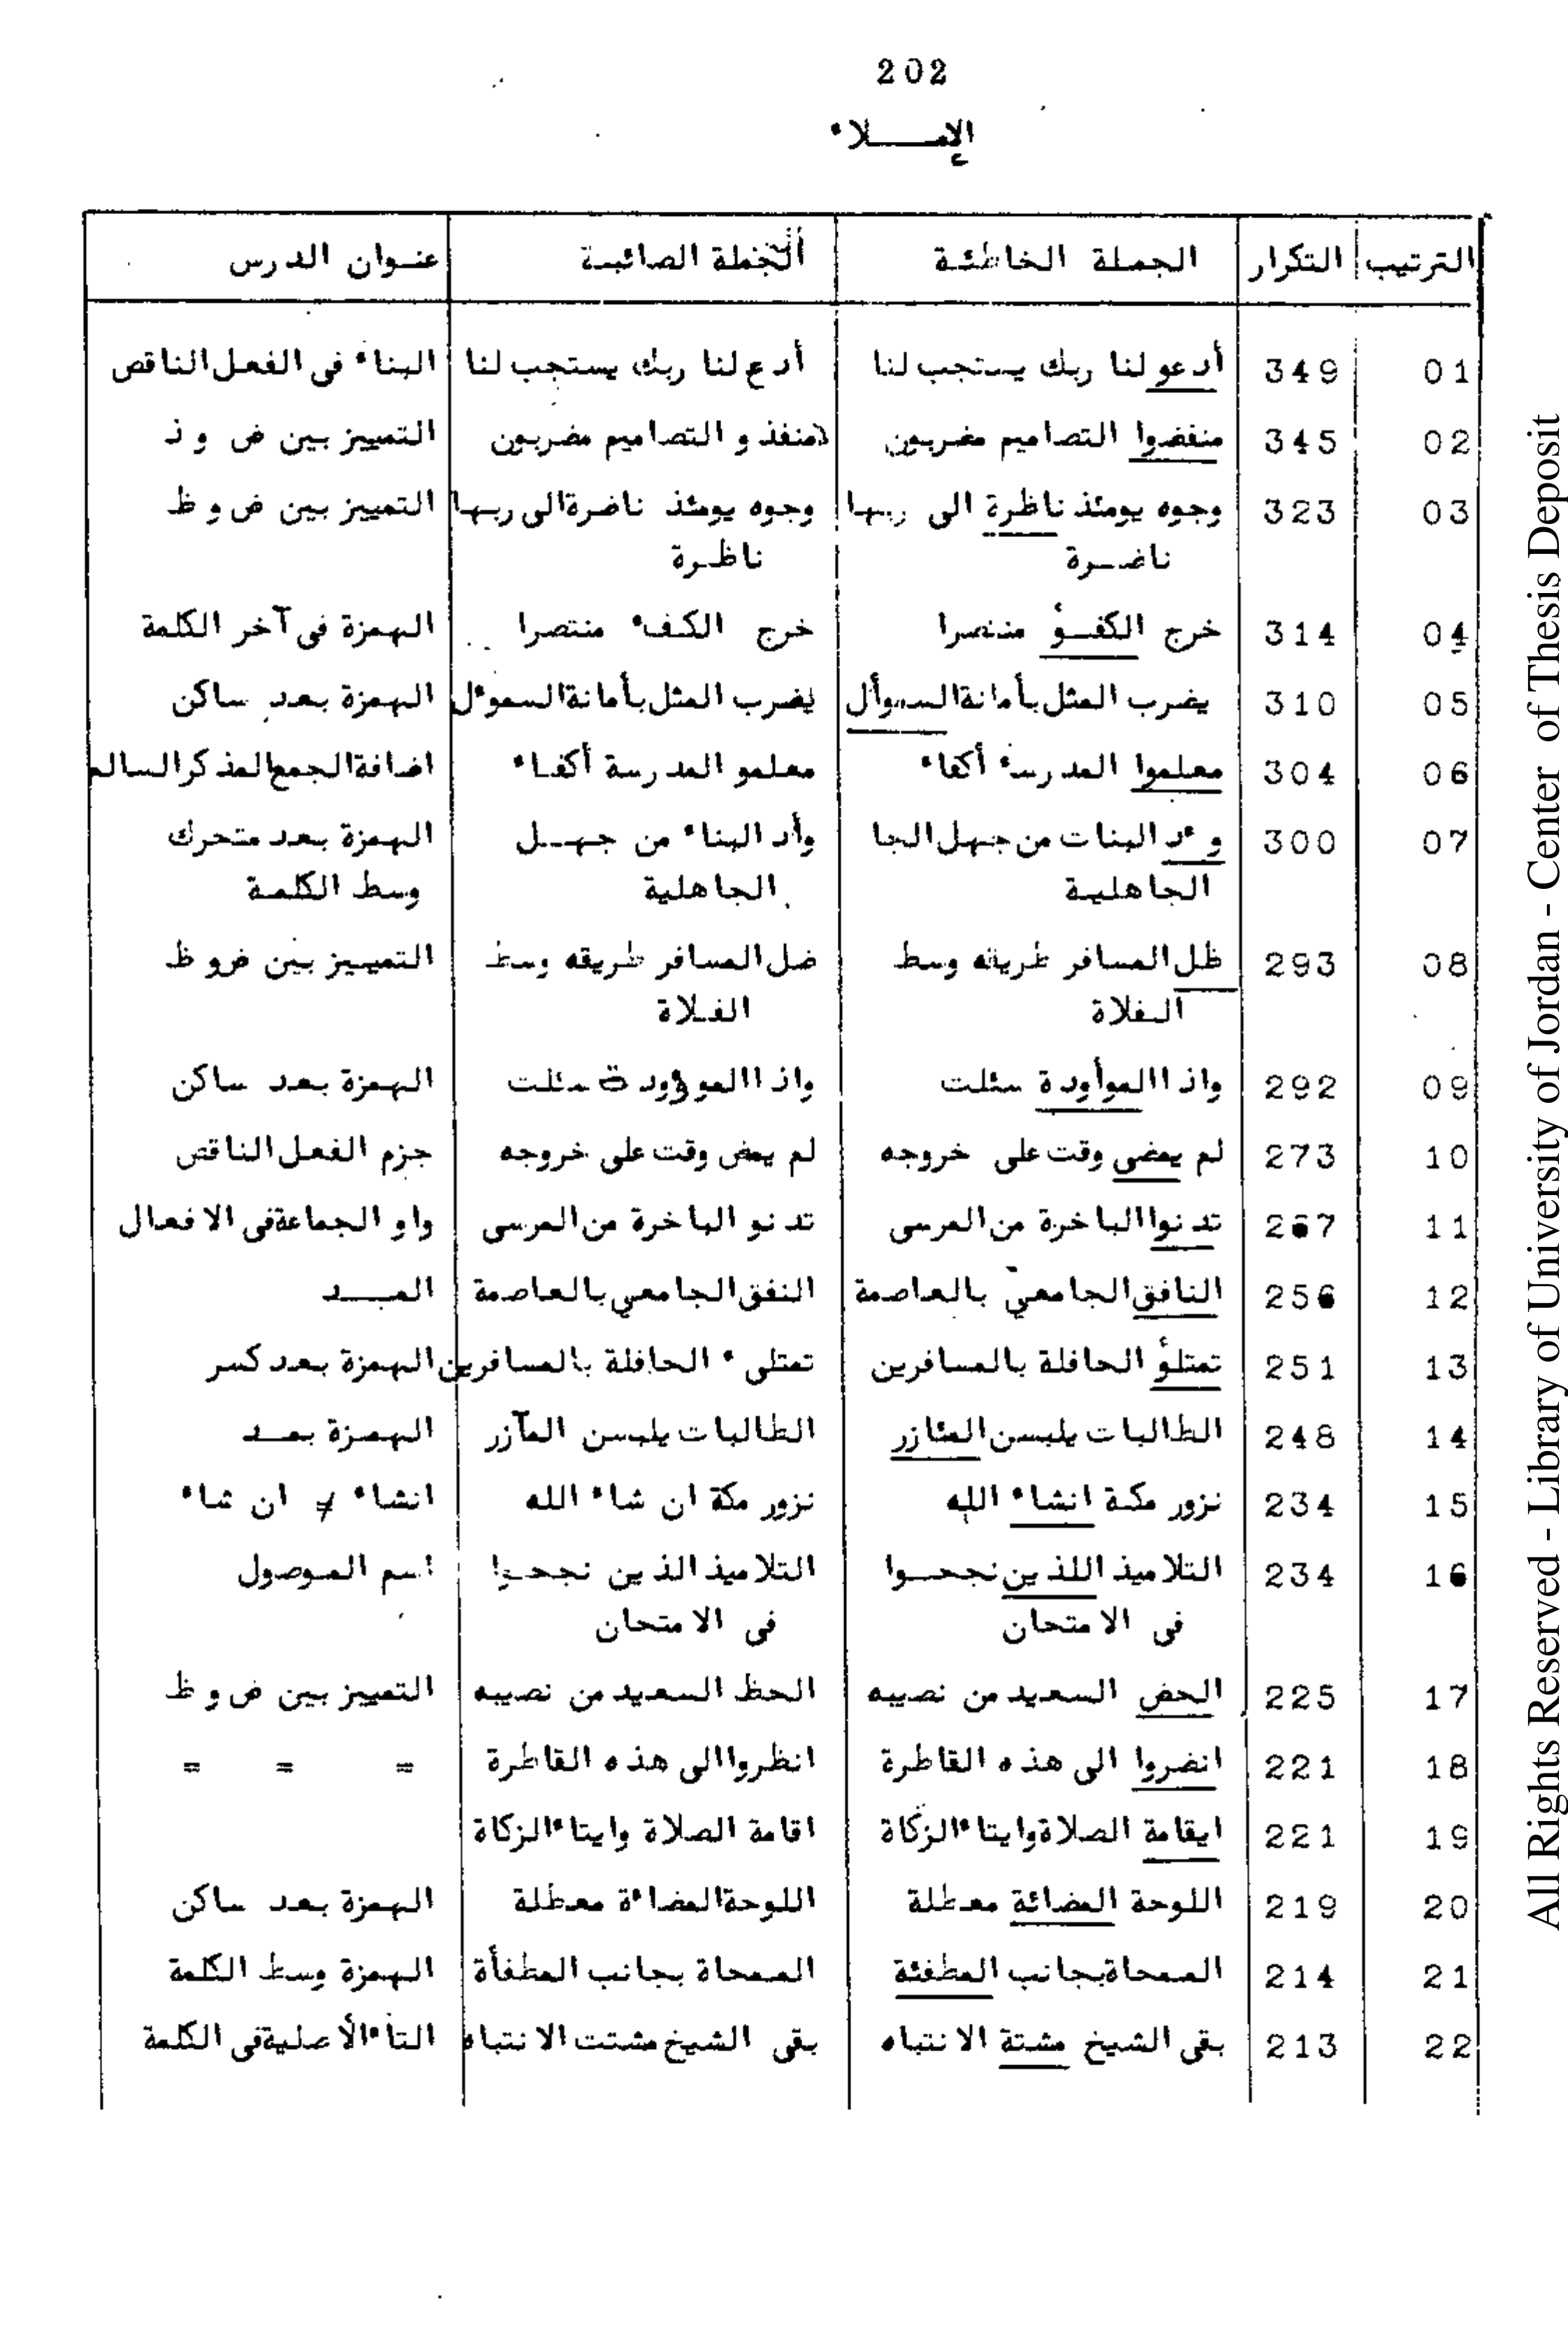 202
الإمـــــلاء
الترتيب التكرار الجملة الخاطئة الجملة الصائبة عنوان الدرس
01 349 أدعو لنا ربك يستجب لنا أدع لنا ربك يستجب لنا البناء فى الفعل الناقص
02 345 منفضوا التصاميم مضربون منفذ و التصاميم مضربون التمييز بين ض و ذ
03 323 وجوه يومئذ ناظرة الى ربها وجوه يومئذ ناضرة الى ربها التمييز بين ض و ظ
ناضـرة ناظـرة
04 314 خرج الكفـؤ منتصرا خرج الكفء منتصرا الهمزة فى آخر الكلمة
05 310 يضرب المثل بأمانة السموأل يضرب المثل بأمانة السموءل الهمزة بعد ساكن
06 304 معلموا المدرسة أكفاء معلمو المدرسة أكفاء اضافة الجمع المذكر السالم
07 300 وءد البنات من جهل الجا وأد البناء من جهـل الهمزة بعد متحرك
الجاهلية الجاهلية وسط الكلمة
08 293 ظل المسافر طريقه وسط ضل المسافر طريقه وسط التمييز بين ض و ظ
الفلاة الفلاة
09 292 واذا الموأودة سئلت واذا الموؤودة سئلت الهمزة بعد ساكن
10 273 لم يمضى وقت على خروجه لم يمض وقت على خروجه جزم الفعل الناقص
11 267 تدنوا الباخرة من المرسى تدنو الباخرة من المرسى واو الجماعة فى الافعال
12 256 النافق الجامعي بالعاصمة النفق الجامعي بالعاصمة المـــد
13 251 تمتلؤ الحافلة بالمسافرين تمتلىء الحافلة بالمسافرين الهمزة بعد كسر
14 248 الطالبات يلبسن المئازر الطالبات يلبسن المآزر الهمزة بعـد
15 234 نزور مكة انشاء الله نزور مكة ان شاء الله انشاء ≠ ان شاء
16 234 التلاميذ اللذين نجحـوا التلاميذ الذين نجحـوا اسم الموصول
فى الامتحان فى الامتحان
17 225 الحض السعيد من نصيبه الحظ السعيد من نصيبه التمييز بين ض و ظ
18 221 انضروا الى هذه القاطرة انظروا الى هذه القاطرة = = =
19 221 ايقامة الصلاة وايتاء الزكاة اقامة الصلاة وايتاء الزكاة
20 219 اللوحة المضائة معطلة اللوحة المضاءة معطلة الهمزة بعد ساكن
21 214 الممحاة بجانب المطفئة الممحاة بجانب المطفأة الهمزة وسط الكلمة
22 213 بقى الشيخ مشتة الانتباه بقى الشيخ مشتت الانتباه التاء الأصلية فى الكلمة
All Rights Reserved - Library of University of Jordan - Center of Thesis Deposit